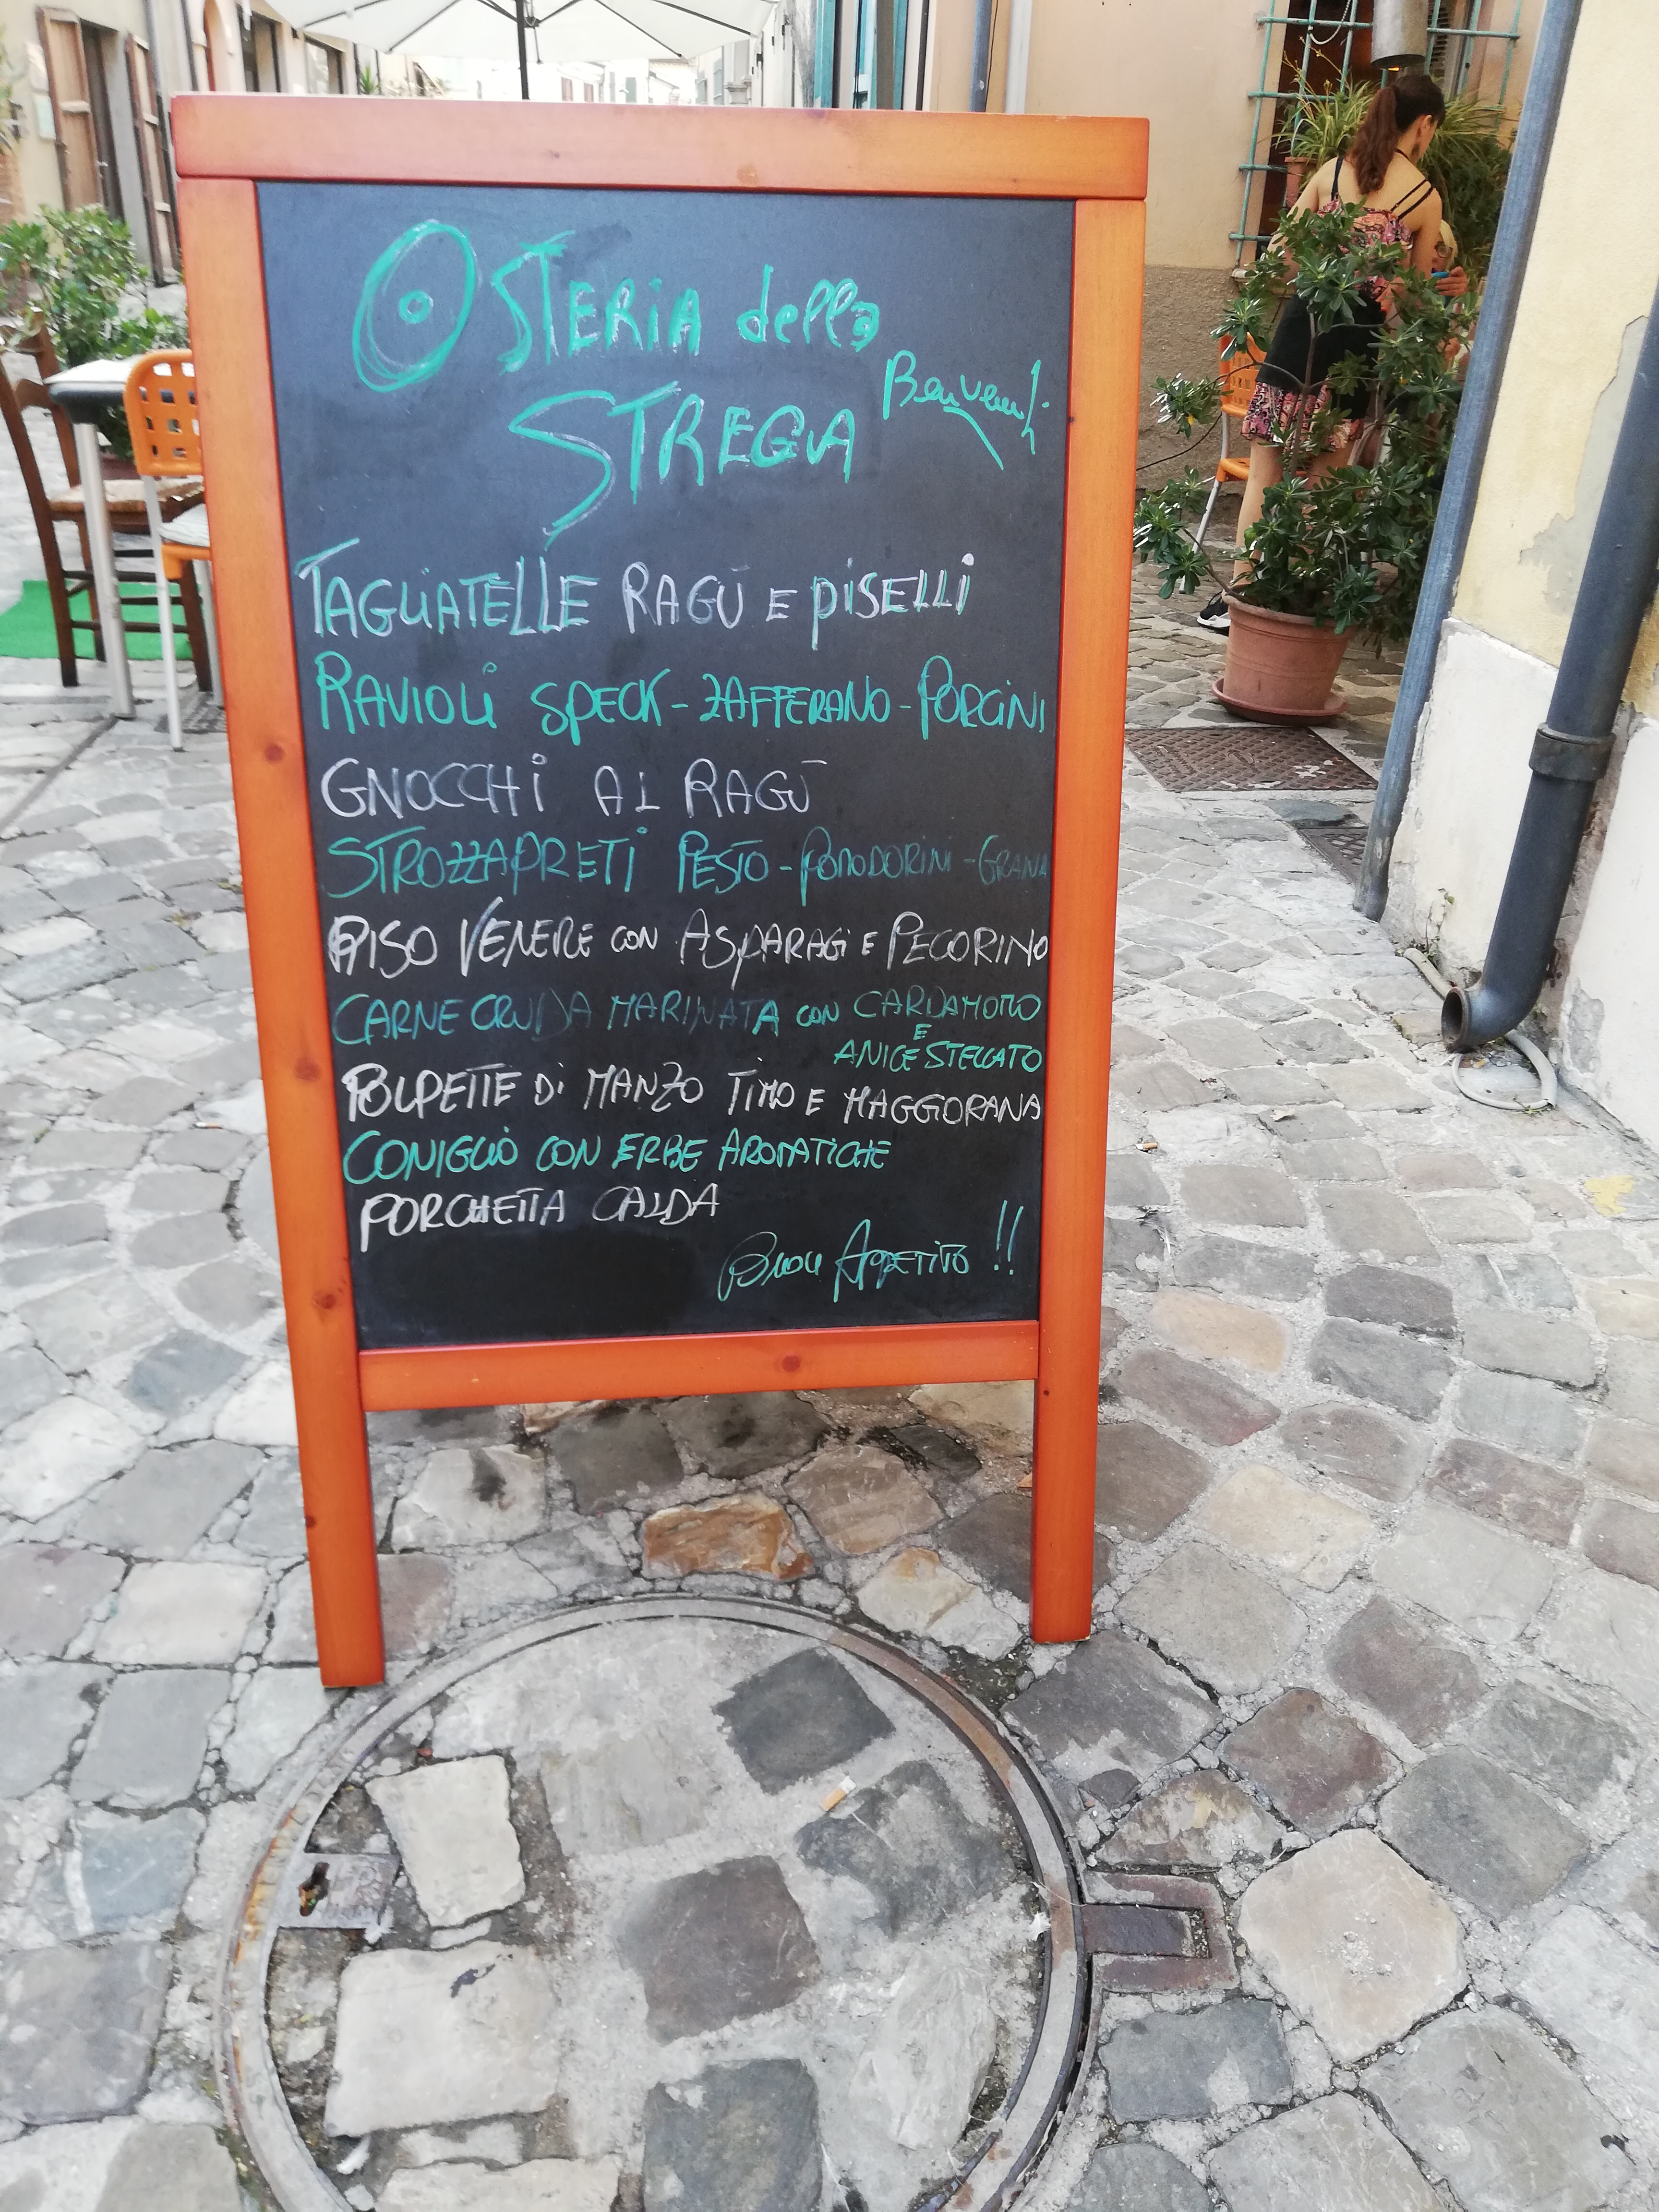 OSTERIA della
STREGA Benvenuti
TAGLIATELLE RAGÙ E PISELLI
RAVIOLI SPECK - ZAFFERANO - PORCINI
GNOCCHI AL RAGÙ
STROZZAPRETI PESTO - POMODORINI - GRANA
RISO VENERE CON ASPARAGI E PECORINO
CARNE CRUDA MARINATA CON CARDAMOMO
E
ANICE STELLATO
POLPETTE DI MANZO TIMO E MAGGIORANA
CONIGLIO CON ERBE AROMATICHE
PORCHETTA CALDA
Buon APPETITO !!